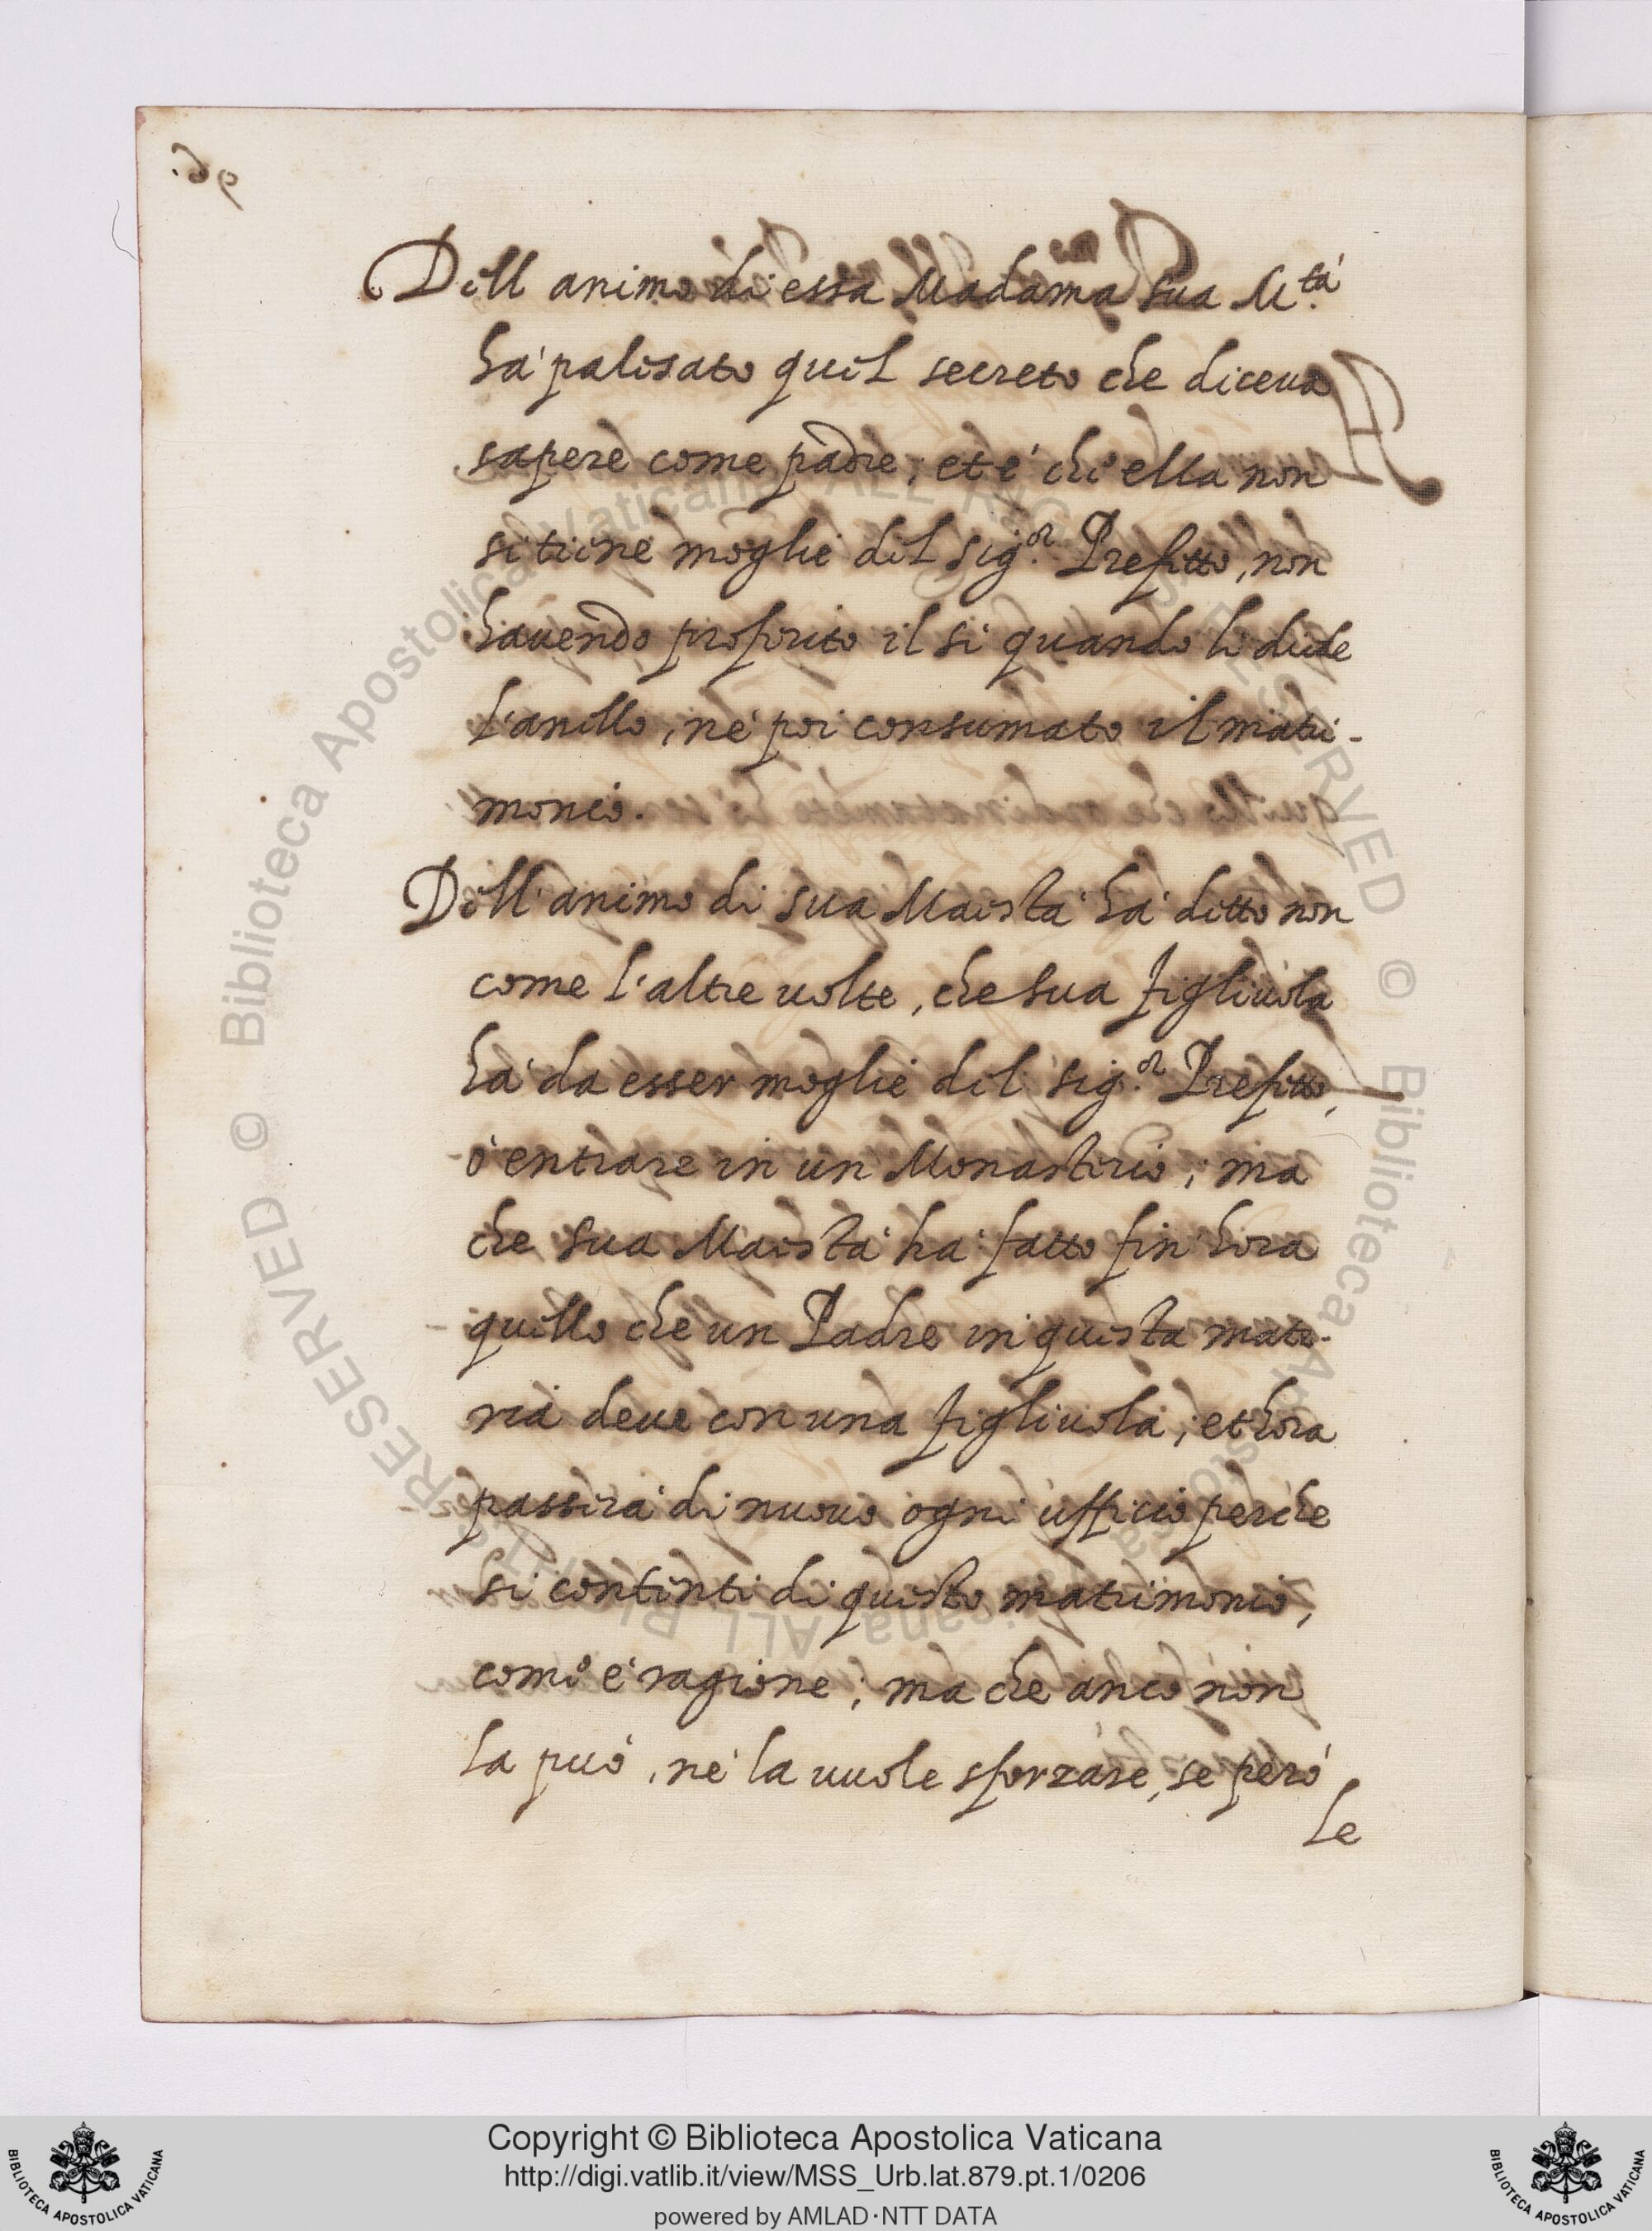 Dell animo di essa Madama sua M.tà
hà palesato quel secreto che diceua
sapere come padre; et è che ella non
si tiene moglie del sig.or Prefetto, non
hauendo proferito il si quando li diede
l'anello, nè poi consumato il matri-
monio.
Dell'animo di sua Maestà hà detto non
come l'altre uolte, che sua figliuola
hà da esser moglie del sig.or Prefetto,
ò entrare in un Monasterio; ma
che sua Maestà ha fatto fin'hora
quello che un Padre in questa mate-
ria deue con una figliuola; et hora
passerà di nuouo ogni ufficio perche
si contenti di questo matrimonio,
come è ragione; ma che anco non
la può, nè la uuole sforzare, se però
le
© Biblioteca Apostolica Vaticana ALL RIGHTS RESERVED © Biblioteca Apostolica Vaticana ALL RIGHTS RESERVED
BIBLIOTECA APOSTOLICA VATICANA
Copyright © Biblioteca Apostolica Vaticana
http://digi.vatlib.it/view/MSS_Urb.lat.879.pt.1/0206
powered by AMLAD·NTT DATA
BIBLIOTECA APOSTOLICA VATICANA